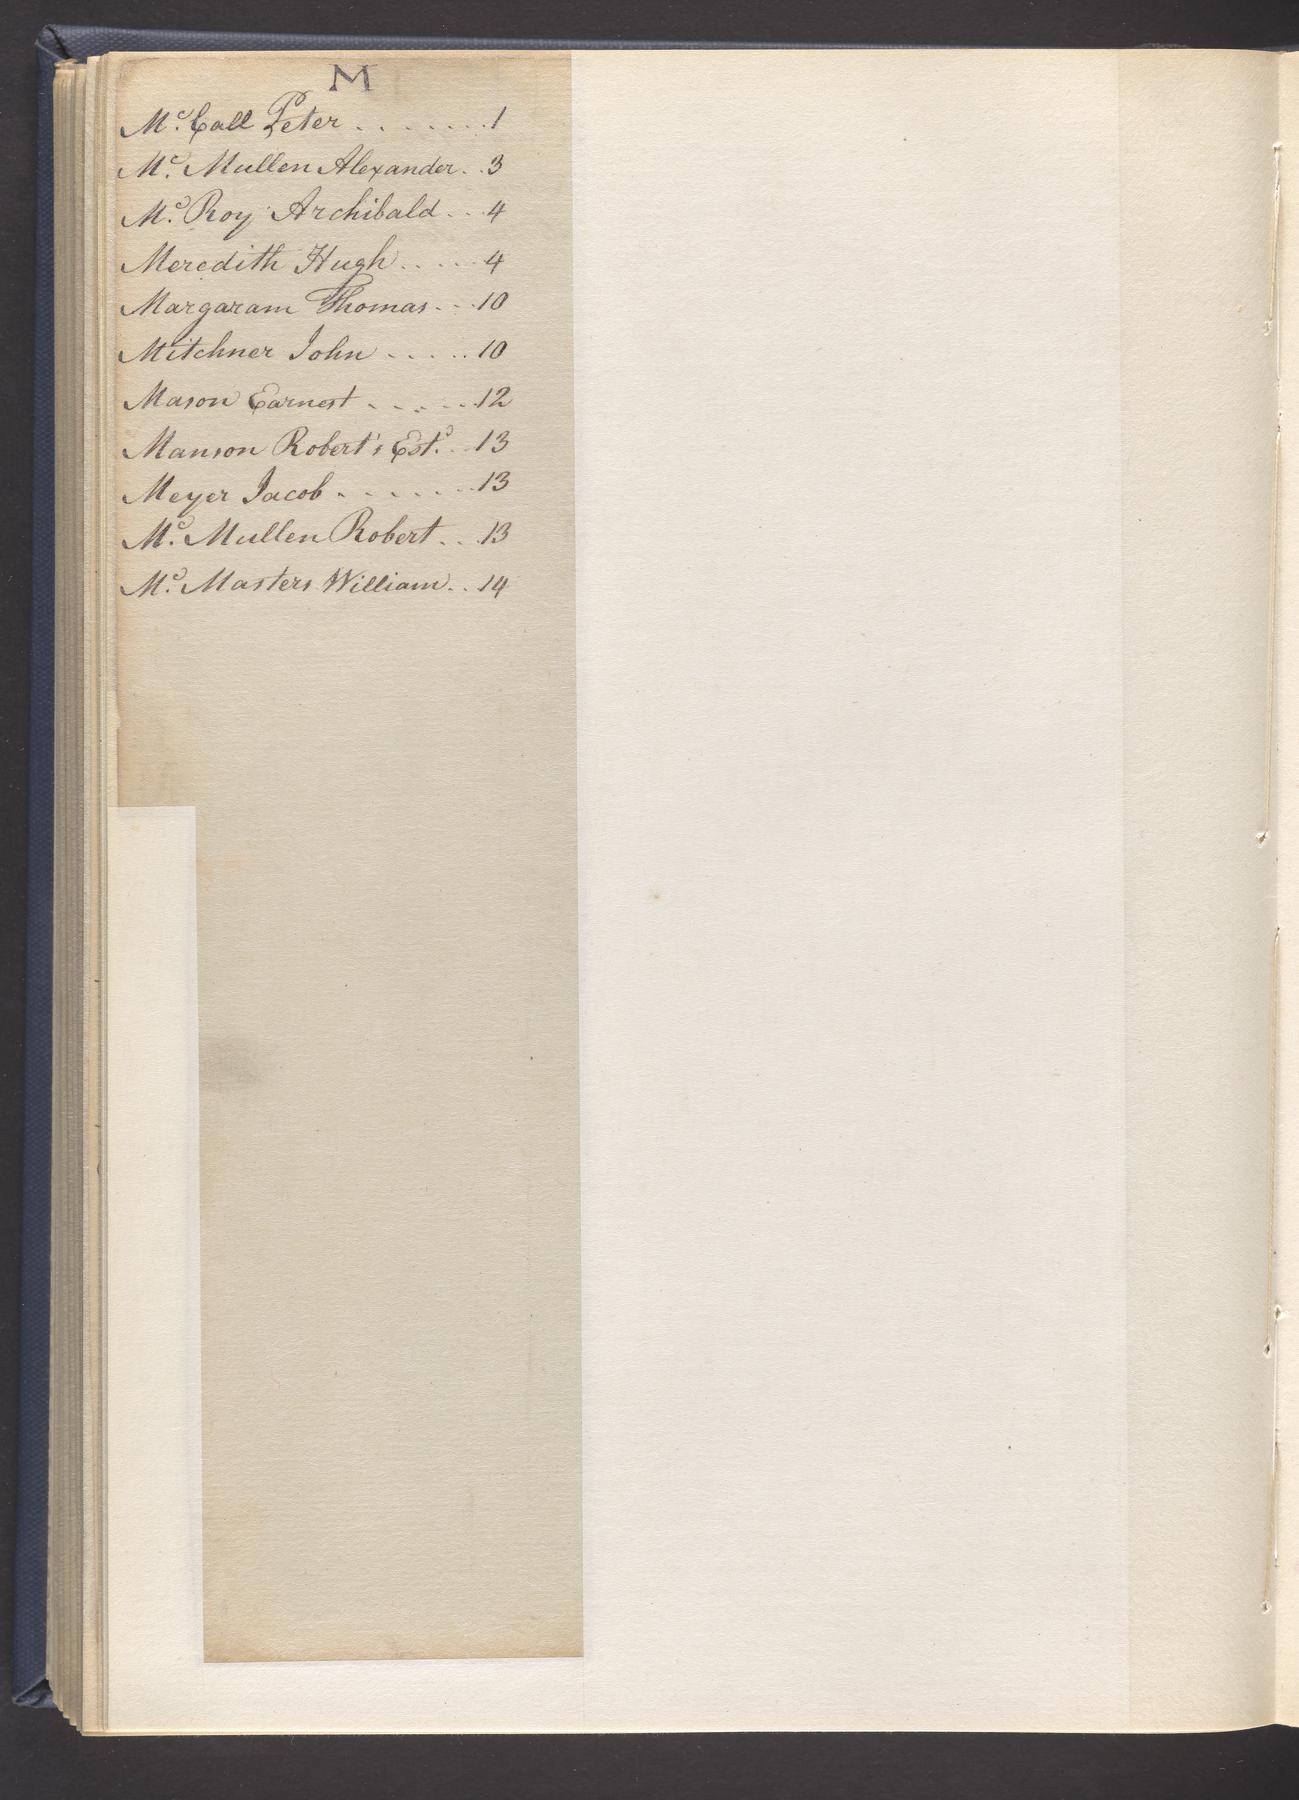 M
Mc. Call Peter ........ 1
Mc. Mullen Alexander .. 3
Mc. Roy Archibald ... 4
Meredith Hugh ..... 4
Margaram Thomas ... 10
Mitchner John ..... 10
Mason Earnest ...... 12
Manson Robert's Estd. .. 13
Meyer Jacob ....... 13
Mc. Mullen Robert ... 13
Mc. Masters William .. 14